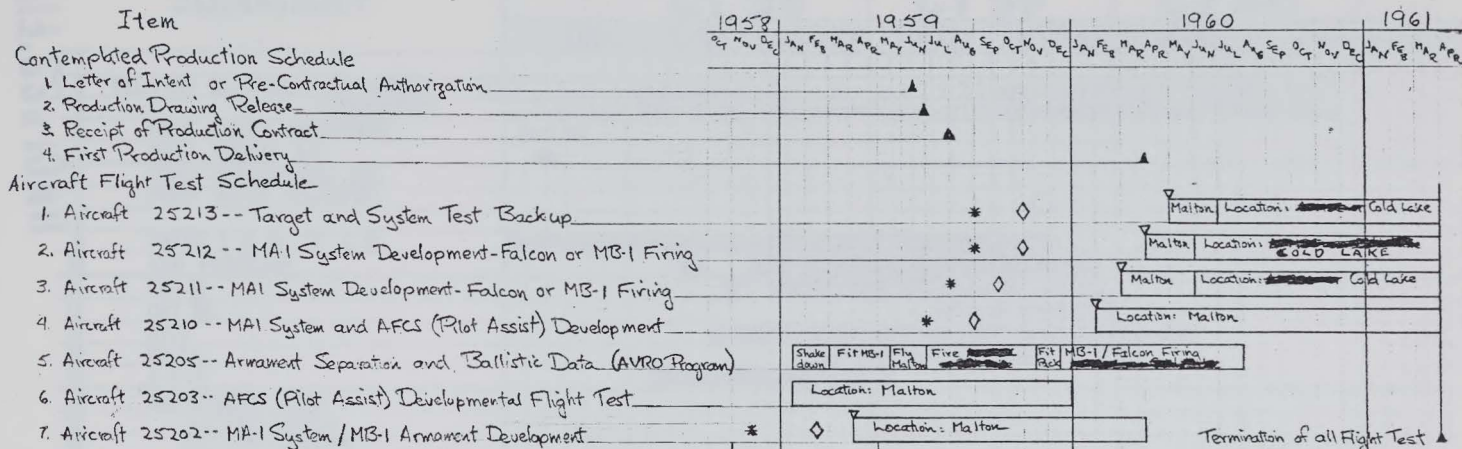 Item 1958 1959 1960 1961
OCT NOV DEC JAN FEB MAR APR MAY JUN JUL AUG SEP OCT NOV DEC JAN FEB MAR APR MAY JUN JUL AUG SEP OCT NOV DEC JAN FEB MAR APR
Contemplated Production Schedule
1. Letter of Intent or Pre-Contractual Authorization
2. Production Drawing Release
3. Receipt of Production Contract
4. First Production Delivery
Aircraft Flight Test Schedule
1. Aircraft 25213-- Target and System Test Backup Malton Location: Cold Lake
2. Aircraft 25212-- MA1 System Development-Falcon or MB-1 Firing Malton Location:
COLD LAKE
3. Aircraft 25211-- MA1 System Development-Falcon or MB-1 Firing Malton Location: Cold Lake
4. Aircraft 25210-- MA1 System and AFCS (Pilot Assist) Development Location: Malton
5. Aircraft 25205-- Armament Separation and Ballistic Data (AVRO Program) Shake down Fit MB-1 Fly Malton Fire Fit Pack MB-1 / Falcon Firing
6. Aircraft 25203-- AFCS (Pilot Assist) Developmental Flight Test Location: Malton
7. Aircraft 25202-- MA-1 System / MB-1 Armament Development Location: Malton
Termination of all Flight Test